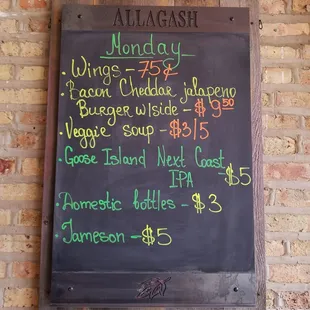 ALLAGASH
Monday
· Wings - 75¢
· Bacon Cheddar jalapeno
Burger w/side - $9.50
· Veggie soup - $3/5
· Goose Island Next Coast
IPA - $5
· Domestic bottles - $3
· Jameson - $5